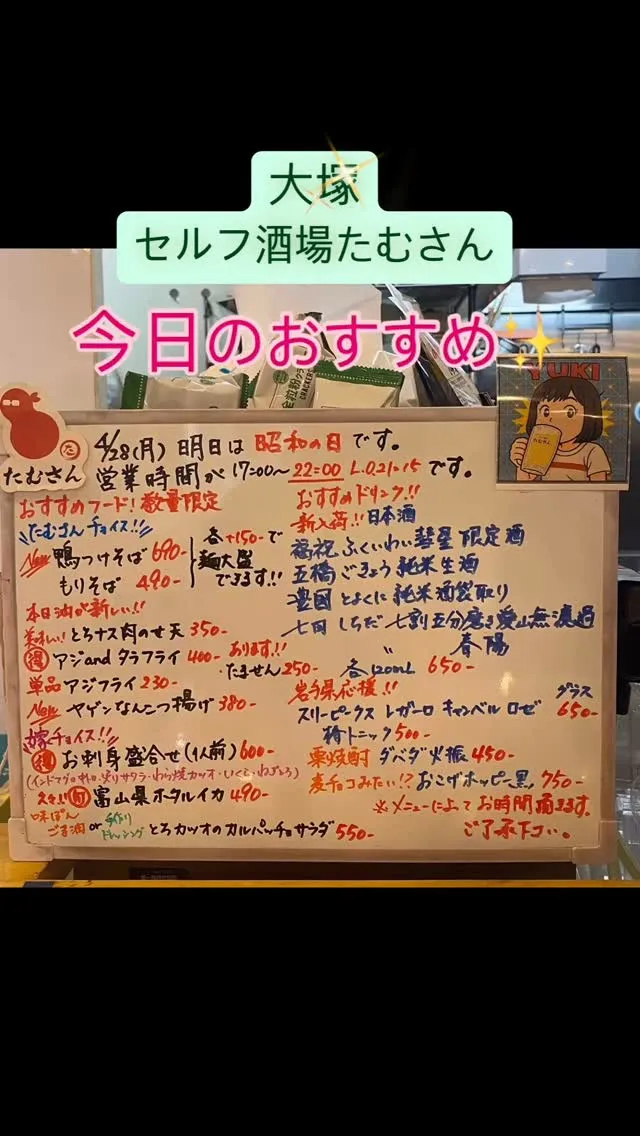 大塚
セルフ酒場たむさん
今日のおすすめ
YUKI
たむさん
4/28(月) 明日は 昭和の日 です。
営業時間が 17:00〜22:00 L.O.21:15 です。
おすすめフード! 数量限定
たむさんチョイス!!
New 鴨つけそば 690-
もりそば 490-
各+150-で
麺大盛
できます!!
本日油が新しい!!
美味い! とろナス肉のせ天 350-
得 アジand タラフライ 400-
あります!!
たません 250-
単品 アジフライ 230-
New ヤゲンなんこつ揚げ 380-
嫁チョイス!!
得 お刺身盛合せ(1人前) 600-
富山県ホタルイカ 490-
味ぽん
ごま油 or 手作りドレッシング とろカツオのカルパッチョサラダ 550-
おすすめドリンク!!
新入荷!! 日本酒
福祝 ふくいわい 彗星 限定酒
五橋 ごきょう 純米生酒
豊國 とよくに 純米酒袋取り
七田 しちだ 七割五分磨き 愛山無濾過
〃 春陽
各120mL 650-
岩手県応援!!
グラス
スリーピークス レガーロ キャンベル ロゼ 650-
柿トニック 500-
栗焼酎 ダバダ火振 450-
麦チョコみたい!? おこげホッピー黒 750-
※メニューによってお時間頂きます。
ご了承下さい。